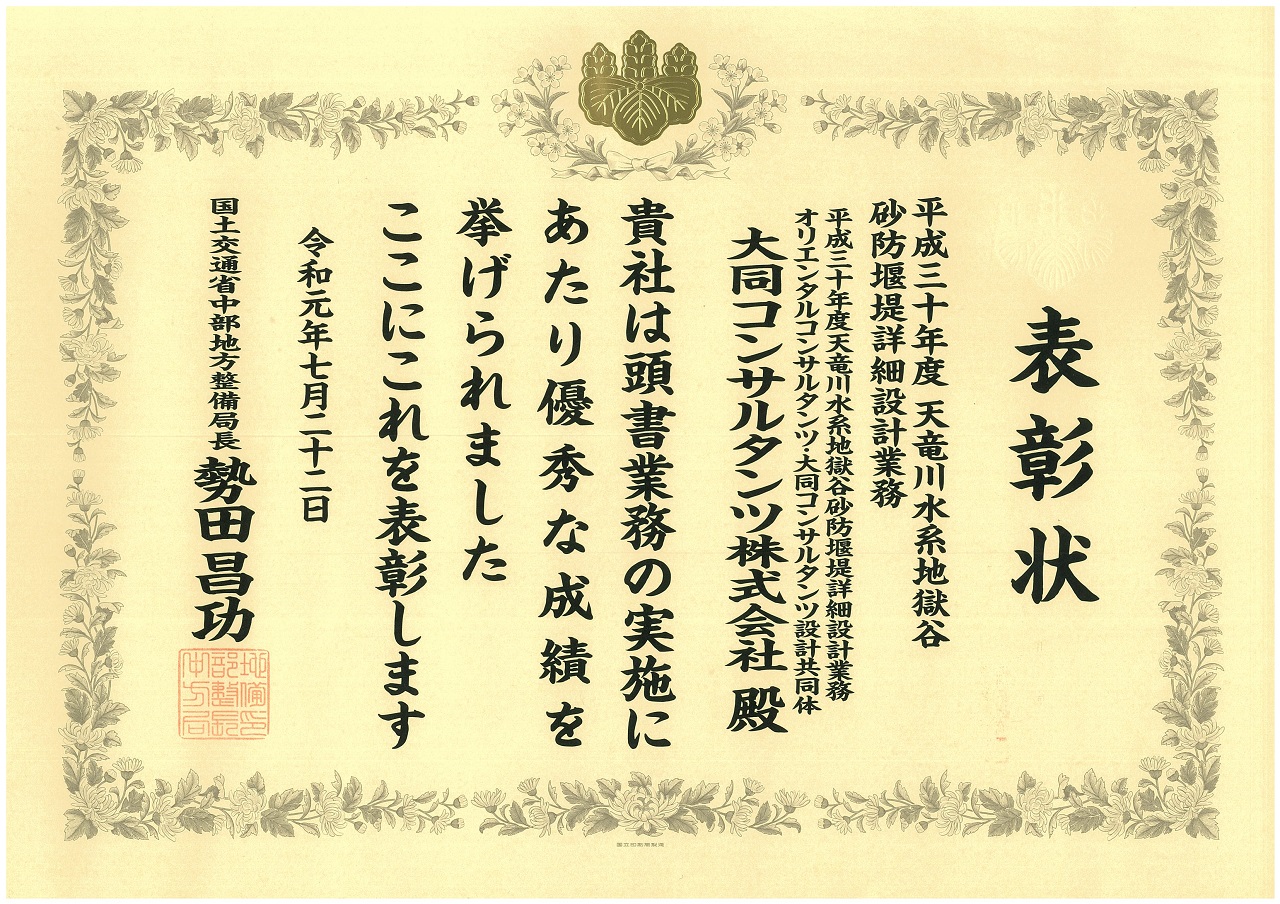 表彰状
平成三十年度 天竜川水系地獄谷
砂防堰堤詳細設計業務
平成三十年度天竜川水系地獄谷砂防堰堤詳細設計業務
オリエンタルコンサルタンツ・大同コンサルタンツ設計共同体
大同コンサルタンツ株式会社 殿
貴社は頭書業務の実施に
あたり優秀な成績を
挙げられました
ここにこれを表彰します
令和元年七月二十二日
国土交通省中部地方整備局長 勢田昌功
国立印刷局製造